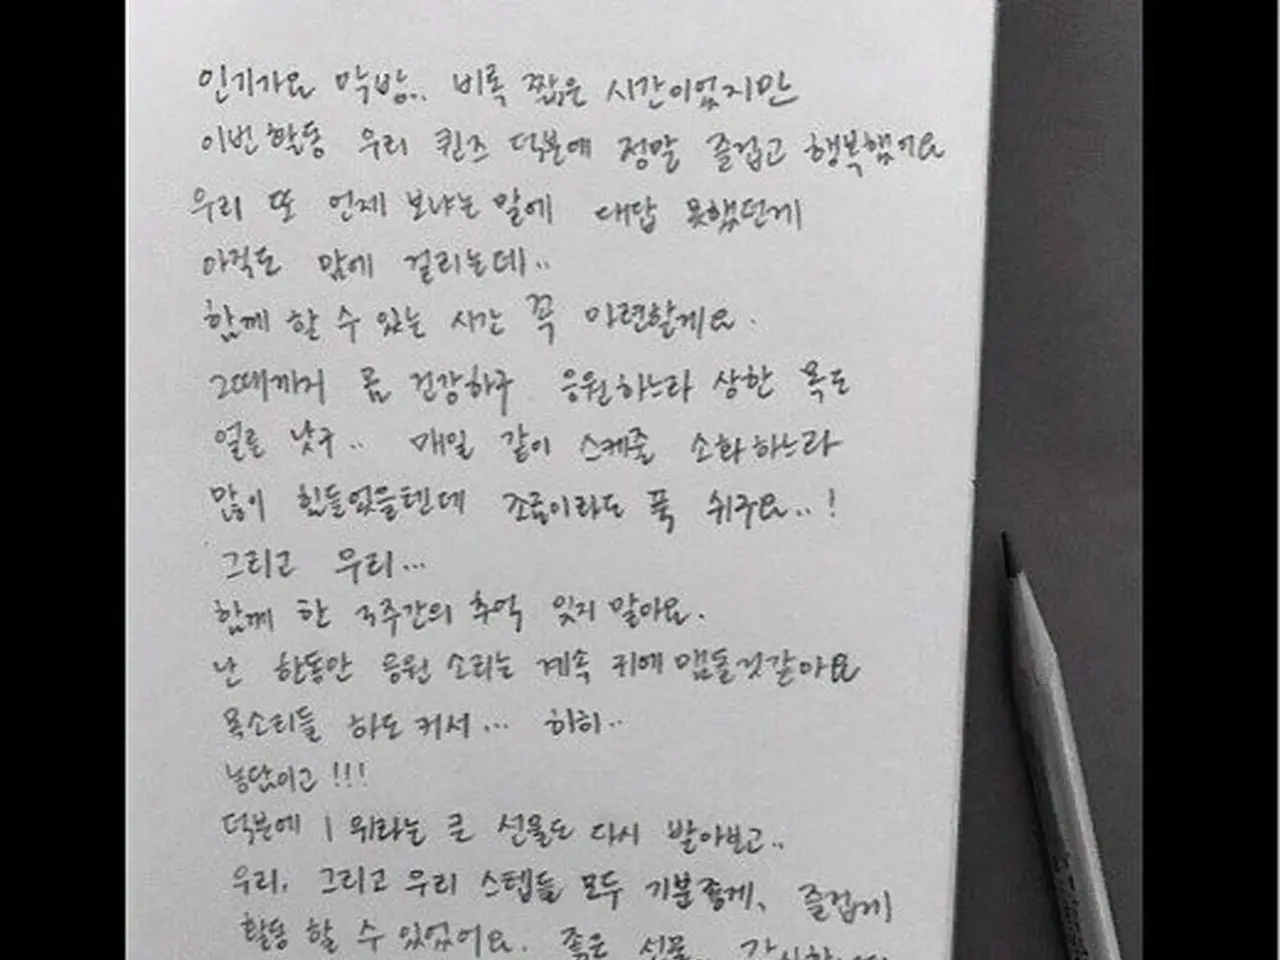 인기가요 막방.. 비록 짧은 시간이었지만
이번 활동 우리 퀸즈 덕분에 정말 즐겁고 행복했어요
우리 또 언제 보냐는 말에 대답 못했던게
아직도 맘에 걸리는데..
함께 할 수 있는 시간 꼭 마련할게요.
그때까지 몸 건강하구 응원하느라 상한 목도
얼른 낫구.. 매일 같이 스케줄 소화하느라
많이 힘들었을텐데 조금이라도 푹 쉬구요..!
그리고 우리...
함께 한 3주간의 추억 잊지 말아요.
난 한동안 응원 소리는 계속 귀에 맴돌것같아요
목소리들 하도 커서... 히히..
농담이고!!!
덕분에 1위라는 큰 선물도 다시 받아보고..
우리, 그리고 우리 스텝들 모두 기분좋게, 즐겁게
활동 할 수 있었어요. 좋은 선물..